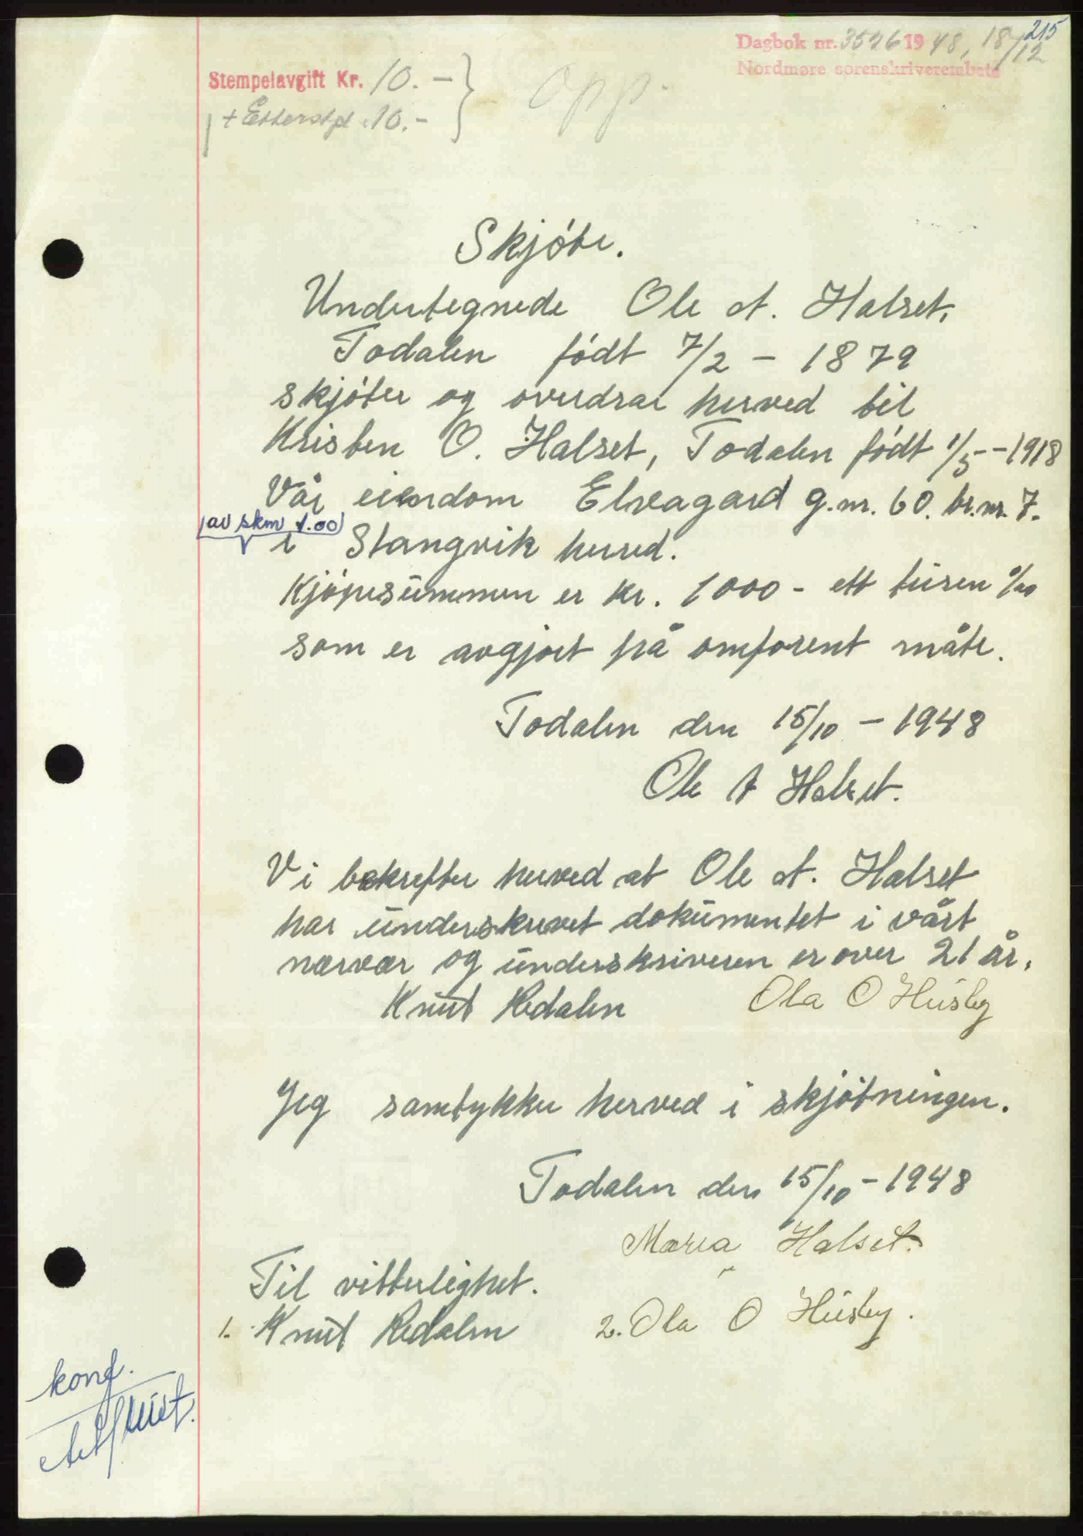 215
Dagbok nr. 3526 1948, 18/12
Nordmøre sorenskriverembete
Stempelavgift Kr. 10.-
+ Etterstpl. 10.-
Opp.
Skjöte.
Undertegnede Ole A. Halset,
Todalen född 7/2 - 1879
skjöter og overdrar herved til
Kristen O. Halset, Todalen född 1/5 - 1918
Vår eiendom Elvagard g.nr. 60. br.nr. 7.
av skm 1.00
i Stangvik herred.
Kjöpesummen er kr. 1000 - ett tusen 0/00
som er avgjort på omforent måte.
Todalen den 15/10 - 1948
Ole A Halset.
Vi bekrefter herved at Ole A. Halset
har underskrevet dokumentet i vårt
nærvær og underskriveren er over 21 år.
Knut Redalen Ola O Husby
Jeg samtykker herved i skjötningen.
Todalen den 15/10 - 1948
Marea Halset.
Til vitterlighet.
1. Knut Redalen 2. Ola O Husby.
konf.